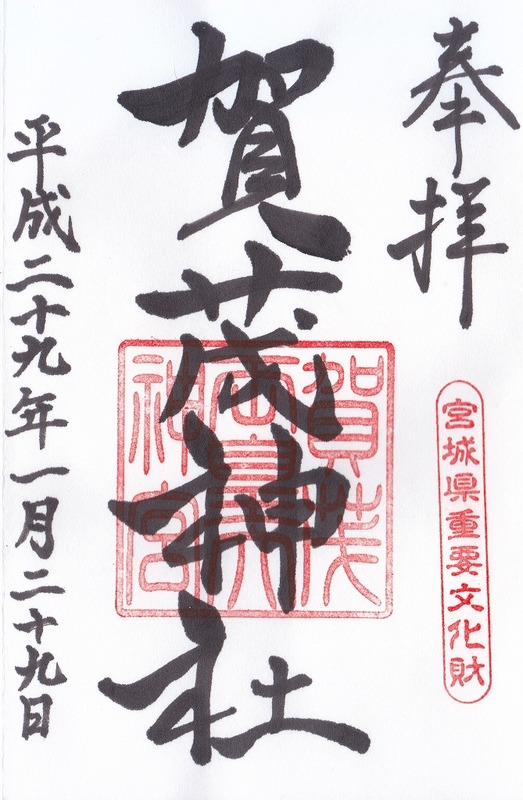 奉拝
宮城県重要文化財
賀茂神社
賀茂
神宮
平成二十九年一月二十九日